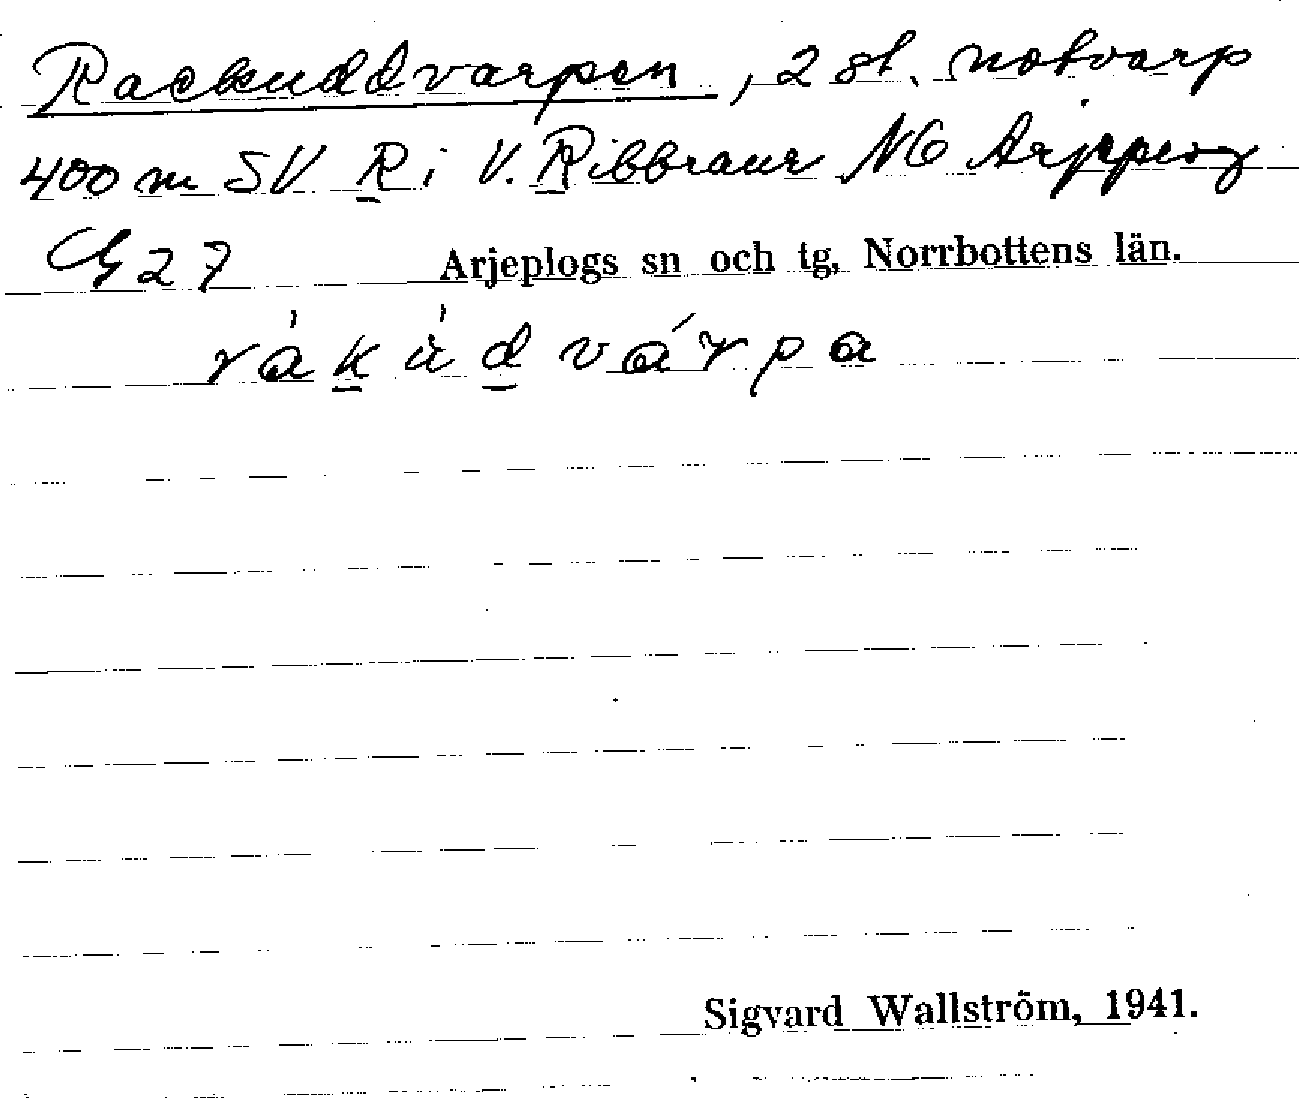 Rackuddvarpen, 2 st. notvarp
400 m SV R i V. Ribbraur NO Arjeplog
G 27 Arjeplogs sn och tg, Norrbottens län.
rákùdvárpa
Sigvard Wallström, 1941.